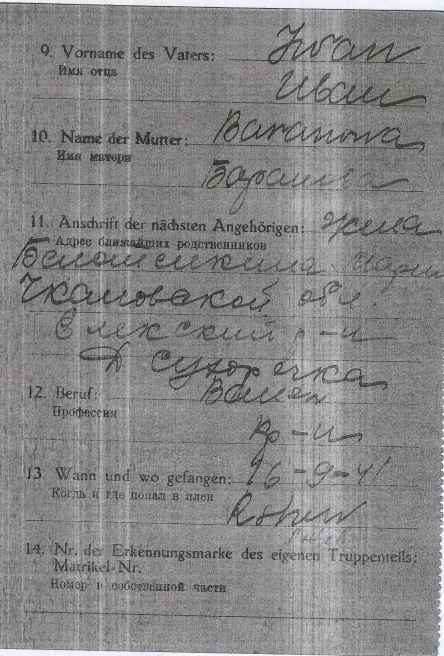 9. Vorname des Vaters: Iwan
Имя отца
Иван
10. Name der Mutter: Baranowa
Имя матери
Баранова
11. Anschrift der nächsten Angehörigen: жена
Адрес ближайших родственников
Мария
Чкаловской обл.
р-н
Д Сухоречка
12. Beruf: Bauer
Профессия
кр-н
13 Wann und wo gefangen: 16-9-41
Когда и где попал в плен
14. Nr. der Erkennungsmarke des eigenen Truppenteils:
Matrikel-Nr.
Номер в собственной части